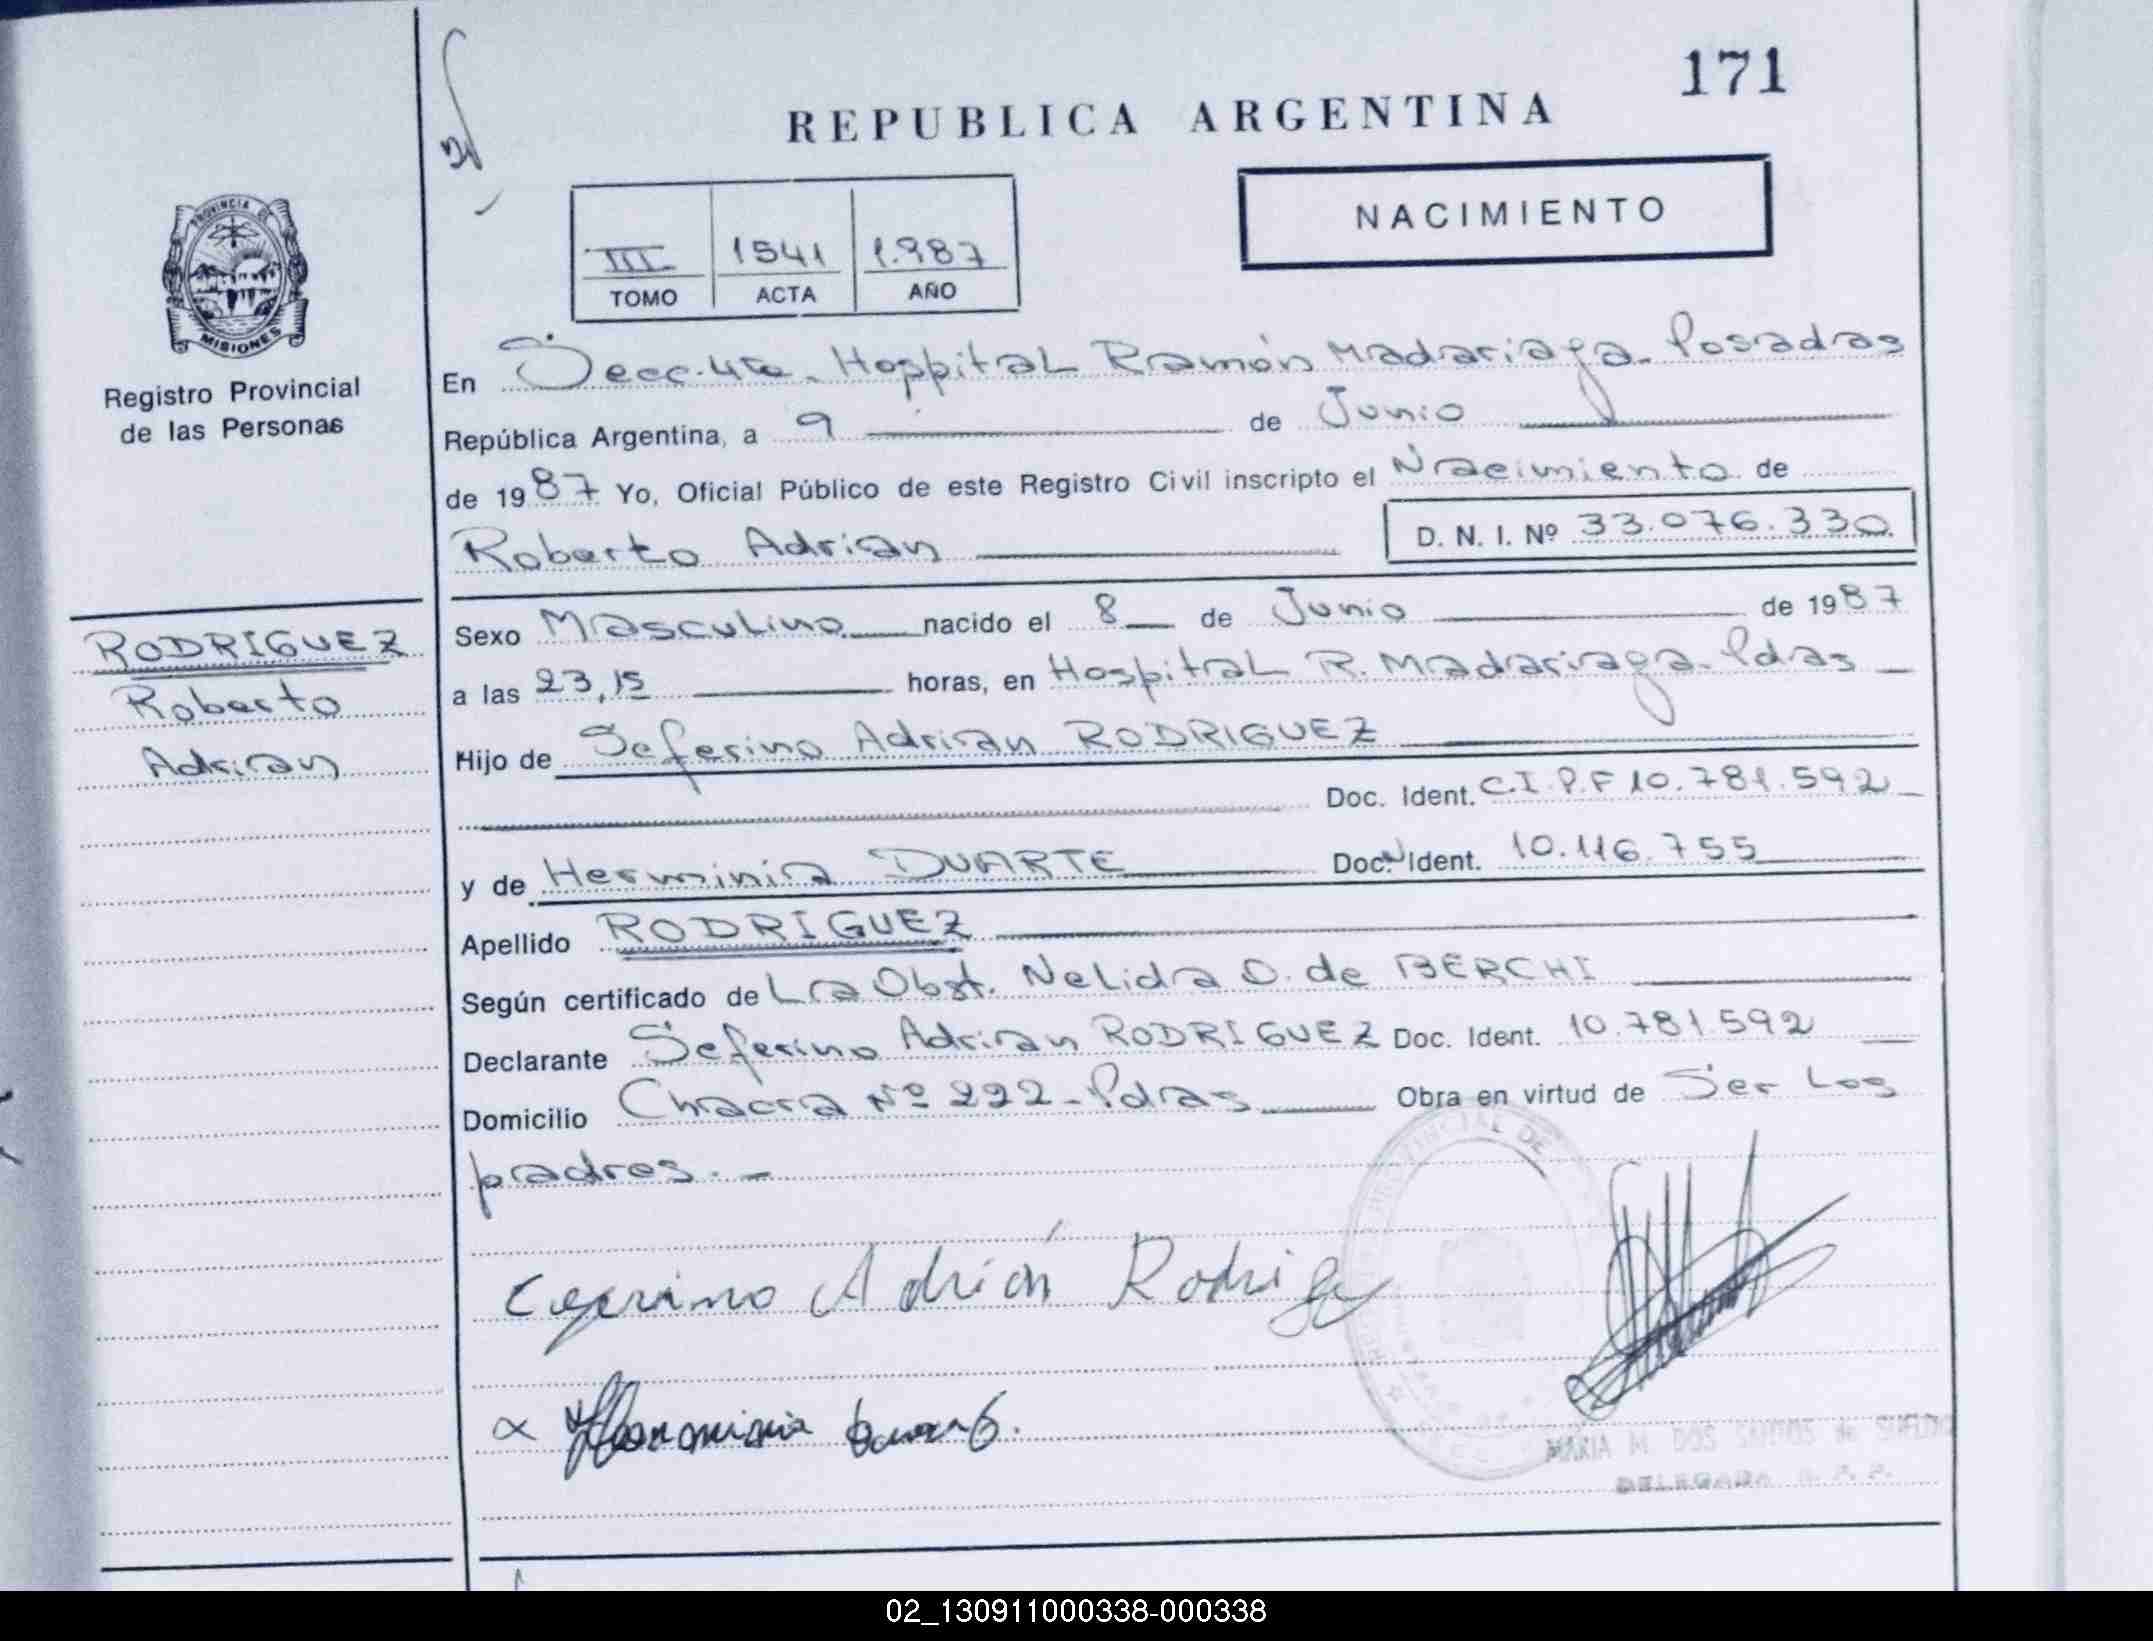 171
REPUBLICA ARGENTINA
NACIMIENTO
III 1541 1.987
TOMO ACTA AÑO
PROVINCIA DE
MISIONES
Registro Provincial
de las Personas
RODRIGUEZ
Roberto
Adrian
En Secc. 4ta. Hospital Ramón Madariaga - Posadas
República Argentina, a 9 de Junio
de 1987 Yo, Oficial Público de este Registro Civil inscripto el Nacimiento de
Roberto Adrian D. N. I. Nº 33.076.330
Sexo Masculino nacido el 8 de Junio de 1987
a las 23,15 horas, en Hospital R. Madariaga - Pdas
Hijo de Seferino Adrian RODRIGUEZ
Doc. Ident. C.I. P.F 10.781.592
y de Herminia DUARTE Doc. Ident. 10.116.755
Apellido RODRIGUEZ
Según certificado de La Obst. Nelida O. de BERCHI
Declarante Seferino Adrian RODRIGUEZ Doc. Ident. 10.781.592
Domicilio Chacra Nº 222 - Pdas Obra en virtud de Ser Los
padres. -
Adrián
MARIA M. DOS SANTOS de
DELEGADA R. P. P.
02_130911000338-000338